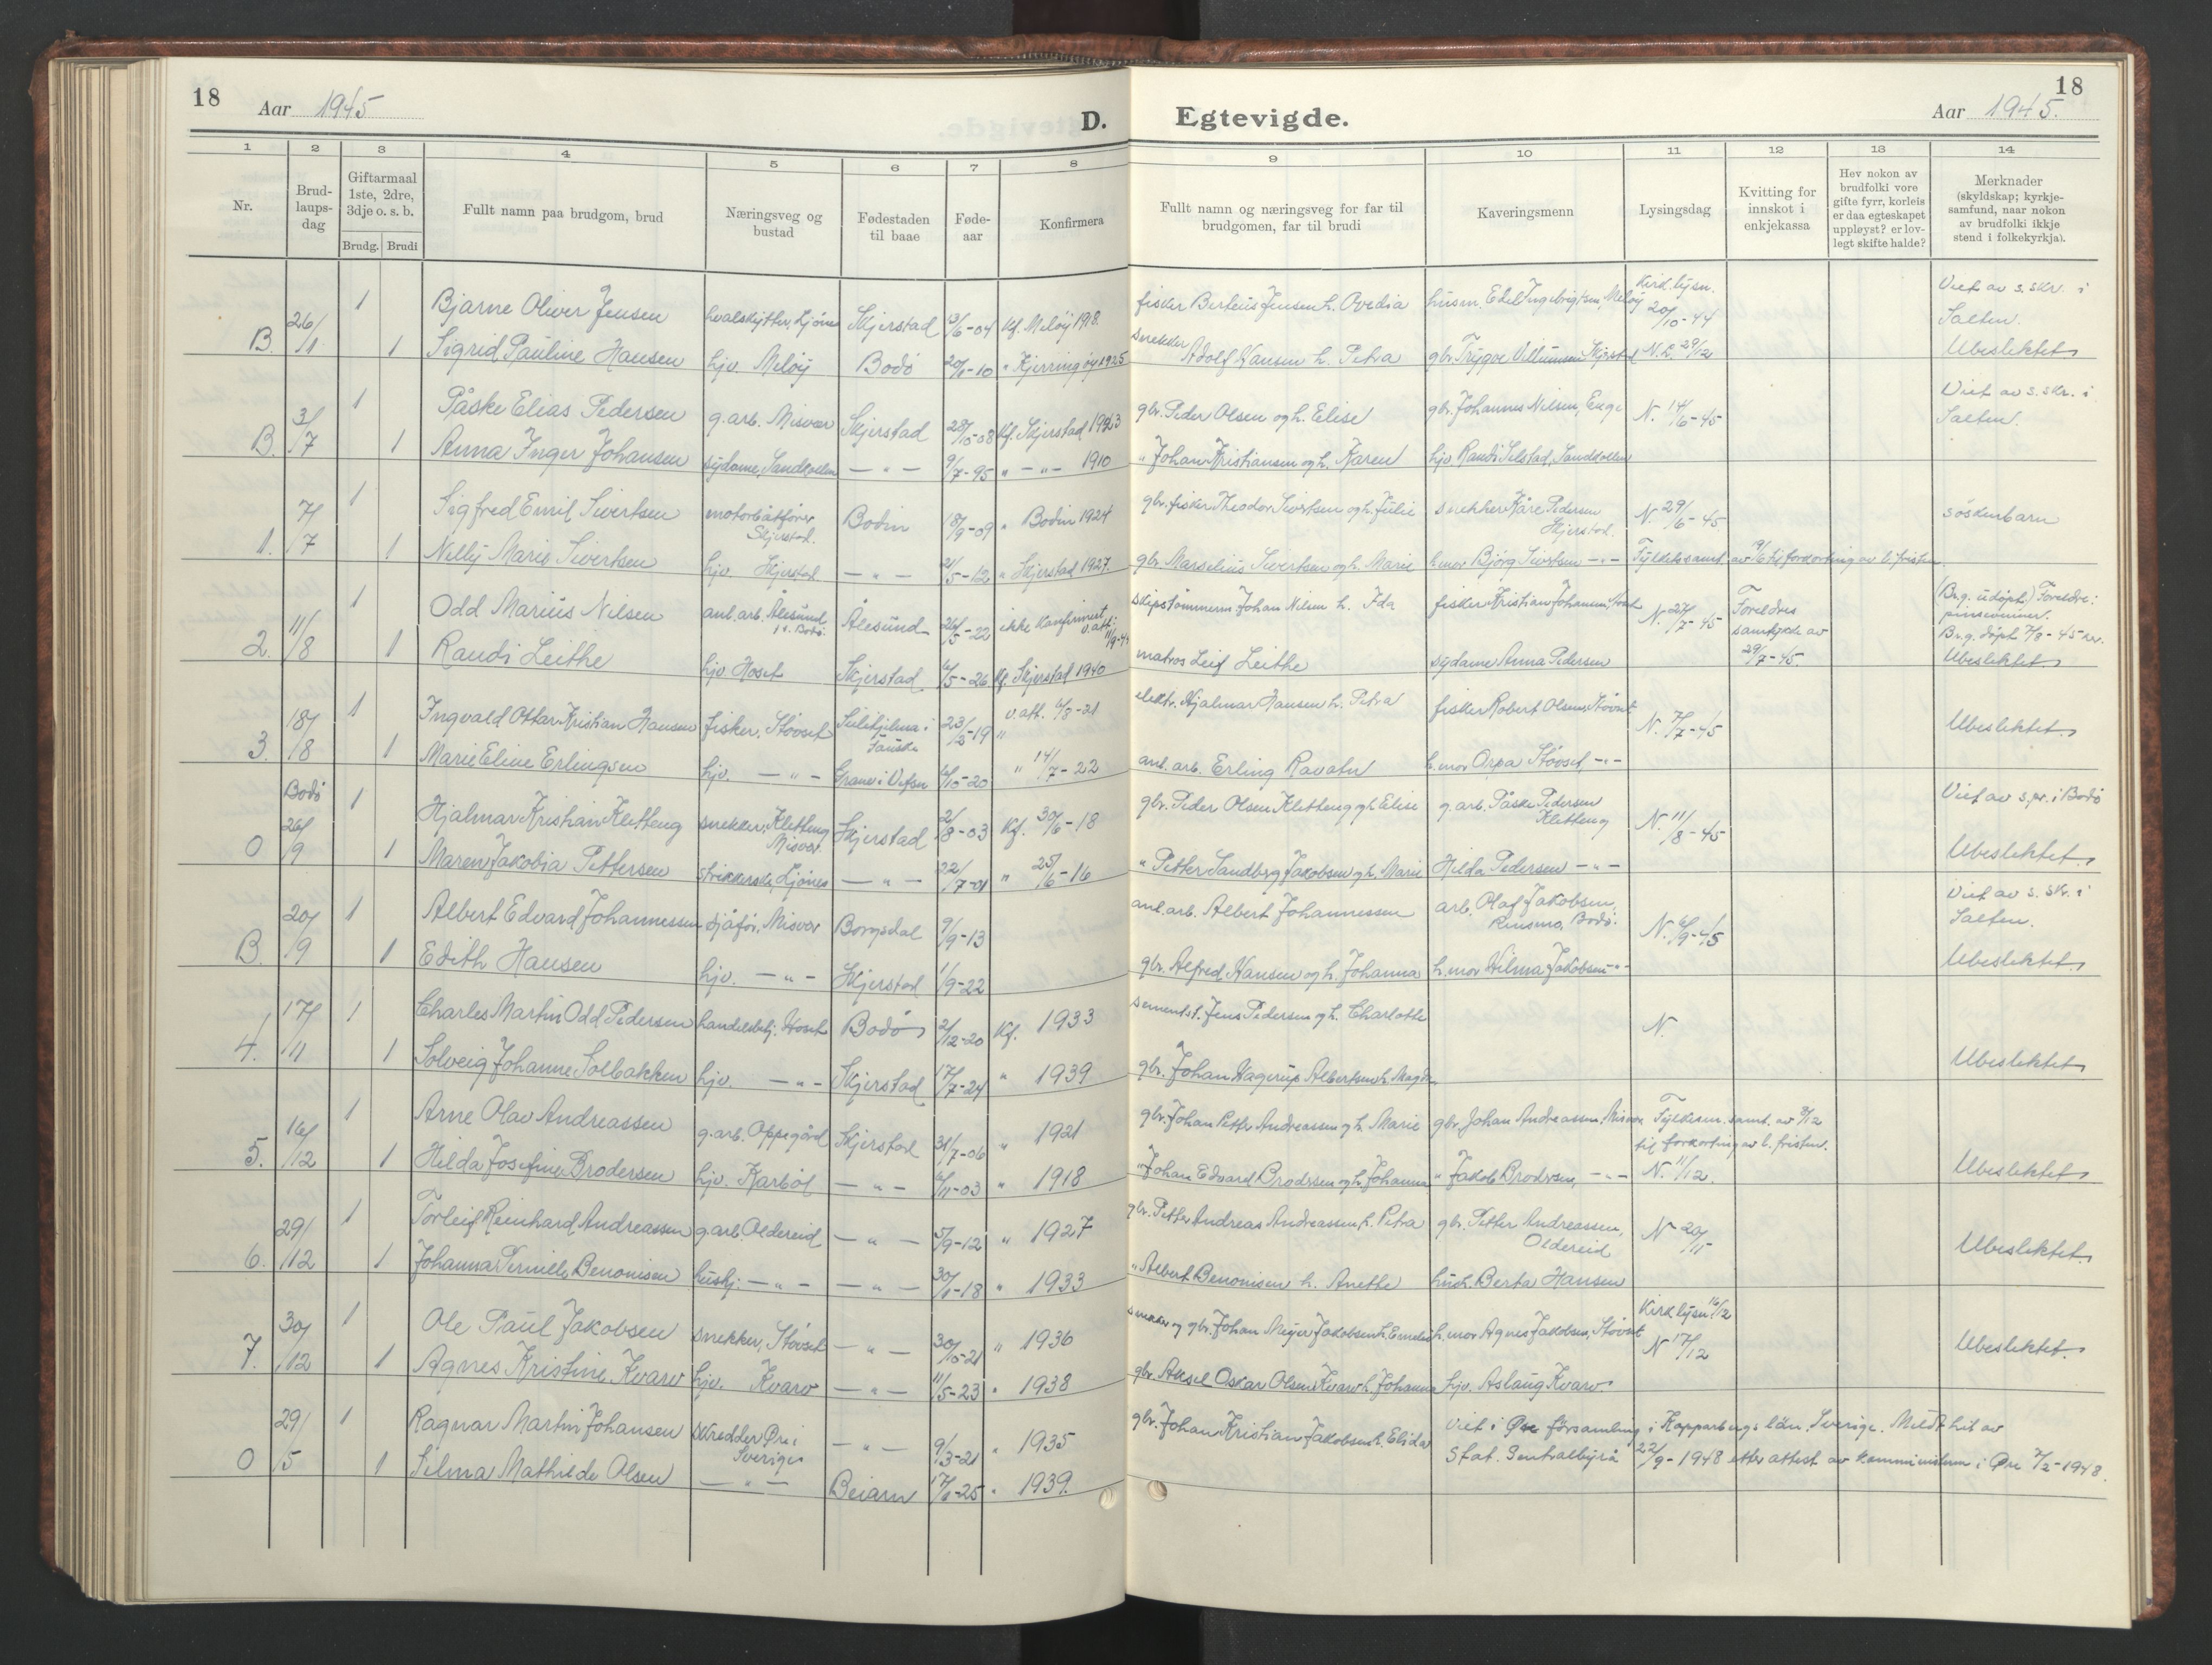 18
Aar 1945
D.
1 2 3 4 5 6 7 8
Nr.
Brud-
laups-
dag
Giftarmaal
1ste, 2dre,
3dje o. s. b.
Brudg. Brudi
Fullt namn paa brudgom, brud
Næringsveg og
bustad
Fødestaden
til baae
Føde-
aar
Konfirmera
B. 26/1 1 Bjarne Oliver Jensen hvalskytter, Ljønes Skjerstad 3/6-04 Kf. Meløy 1918.
1 Sigrid Pauline Hansen hjv. Meløy Bodø 20/6-10 " Kjerringøy 1925
B. 3/7 1 Påske Elias Pedersen g.arb. Misvær Skjerstad 28/10-08 Kf. Skjerstad 1923
1 Anna Inger Johansen sydame, Sandkollen — " — 9/7-95 " — " — 1910
1. 7/7 1 Sigfred Emil Sivertsen motorbåtfører
Skjerstad. Bodin 18/9-09 " Bodin 1924
1 Nelly Marie Sivertsen hjv. Skjerstad — " — 21/5-12 " Skjerstad 1927.
2. 11/8 1 Odd Marius Nilsen anl. arb. Ålesund Ålesund 26/5-22 ikke konfirmert
1 Randi Leithe hjv. Hoset Skjerstad 6/5-26 Kf. Skjerstad 1940
3. 18/8 1 Ingvald Ottar Kristian Hansen fisker, Støvset Sulitjelma i
Fauske 23/5-19 " v.att. 6/8-21
1 Marie Eline Erlingsen hjv. — " — Grane i Vefsn 6/10-20 " 14/7-22
Bodø
0 26/9 1 Hjalmar Kristian Kletteng snekker, Kletteng
Misvær Skjerstad 2/8-03 Kf. 30/6-18
1 Maren Jakobia Pettersen strikkerske, Ljønes — " — 22/7-01 " 25/6-16
B. 20/9 1 Albert Edvard Johannessen sjåfør, Misvær 9/9-13
1 Edith Hansen hjv. — " — Skjerstad 1/9-22
4. 17/11 1 Charles Martin Odd Pedersen handelsbetj. Hoset Bodø 2/12-20 Kf. 1933
1 Solveig Johanne Solbakken hjv. — " — Skjerstad 17/7-24 " 1939
5. 16/12 1 Arne Olav Andreassen g.arb. Oppegård Skjerstad 31/7-06 " 1921
1 Hilda Josefine Brodersen hjv. Karbøl — " — 6/11-03 " 1918
6. 29/12 1 Torleif Reinhard Andreassen g.arb. Oldereid — " — 5/9-12 " 1927
1 Johanna Pernille Benonisen hushj. — " — — " — 30/6-18 " 1933
7. 30/12 1 Ole Paul Jakobsen snekker, Støvset — " — 30/10-21 " 1936
1 Agnes Kristine Kvarv hjv. Kvarv — " — 11/5-23 " 1938
0 29/5 1 Ragnar Martin Johansen skredder Øre i
Sverige — " — 9/3-21 " 1935
1 Selma Mathilde Olsen — " — Beiarn 17/6-25 " 1939.
18
Egtevigde.
Aar 1945.
9 10 11 12 13 14
Fullt namn og næringsveg for far til
brudgomen, far til brudi
Kaveringsmenn
Lysingsdag
Kvitting for
innskot i
enkjekassa
Hev nokon av
brudfolki vore
gifte fyrr, korleis
er daa egteskapet
uppløyst? er lov-
legt skifte halde?
Merknader
(skyldskap; kyrkje-
samfund, naar nokon
av brudfolki ikkje
stend i folkekyrkja).
fisker Berteus Jensen h. Ovedia husm. Edel Ingebrigtsen, Meløy Kirk.lysn.
20/10-44 Viet av s.skr. i
Salten.
snekker Adolf Hansen h. Petra gbr. Trygve Villumsen Skjerstad N.L. 29/12 Ubeslektet
gbr. Peder Olsen og h. Elise gbr. Johannes Nilsen, Enge N. 14/6-45 Viet av s.skr. i
Salten.
" Johan Kristiansen og h. Karen hjv. Randi Selstad, Sandkollen
gbr. fisker Theodor Sivertsen og h. Julie snekker Kåre Pedersen
Skjerstad. N. 29/6-45 søskenbarn
gbr. Marselius Sivertsen og h. Marie h.mor Bjørg Sivertsen — " — Fylkets samt. av 19/6 til forkortning av l. fristen
skipstømmerm. Johan Nilsen h. Ida fisker Kristian Johansen, Hoset N. 27/7-45 Foreldres
samtykke av
29/7-45. (Brg. udøpt.) Foreldre:
pinsevenner.
Brg. døpt 7/8-45
matros Leif Leithe sydame Anna Pedersen Ubeslektet
elektr. Hjalmar Hansen h. Petra fisker Robert Olsen, Støvset N. 7/7-45 Ubeslektet
anl. arb. Erling Ravatn h.mor Orpa Støvset — " —
gbr. Peder Olsen Kletteng og h. Elise g.arb. Påske Pedersen
Kletteng N. 11/8-45 Viet av s.pr. i Bodø
" Petter Sandberg Jakobsen og h. Marie Hilda Pedersen — " — Ubeslektet
anl. arb. Albert Johannessen arb. Olaf Jakobsen,
Rensmo, Bodø. N. 6/9-45 Viet av s.skr. i
Salten.
gbr. Alfred Hansen og h. Johanna h.mor Hilma Jakobsen — " — Ubeslektet
sementst. Jens Pedersen og h. Charlotte N.
gbr. Johan Hagerup Albertsen h. Magda Ubeslektet
gbr. Johan Petter Andreassen og h. Marie gbr. Johan Andreassen, Misvær Fylkesm. samt. av 3/12
til forkortning av l. fristen.
" Johan Edvard Brodersen og h. Johanna " Jakob Brodersen, — " — N. 11/12. Ubeslektet
gbr. Petter Andreas Andreassen h. Petra gbr. Petter Andreassen,
Oldereid N 20/11 Ubeslektet
" Albert Benonisen h. Anethe hush. Berta Hansen
snekker og gbr. Johan Meyer Jakobsen h. Emelie h.mor Agnes Jakobsen, Støvset Kirk lysn 16/12
N 17/12 Ubeslektet
gbr. Aksel Oskar Olsen Kvarv h. Johanna hjv. Aslaug Kvarv
gbr. Johan Kristian Jakobsen h. Elida Viet i Øre församling i Kopparbergs län, Sverige. Meldt hit av
Stat. Sentralbyrå 22/9-1948 etter attest av komministern i Øre 7/2-1948.